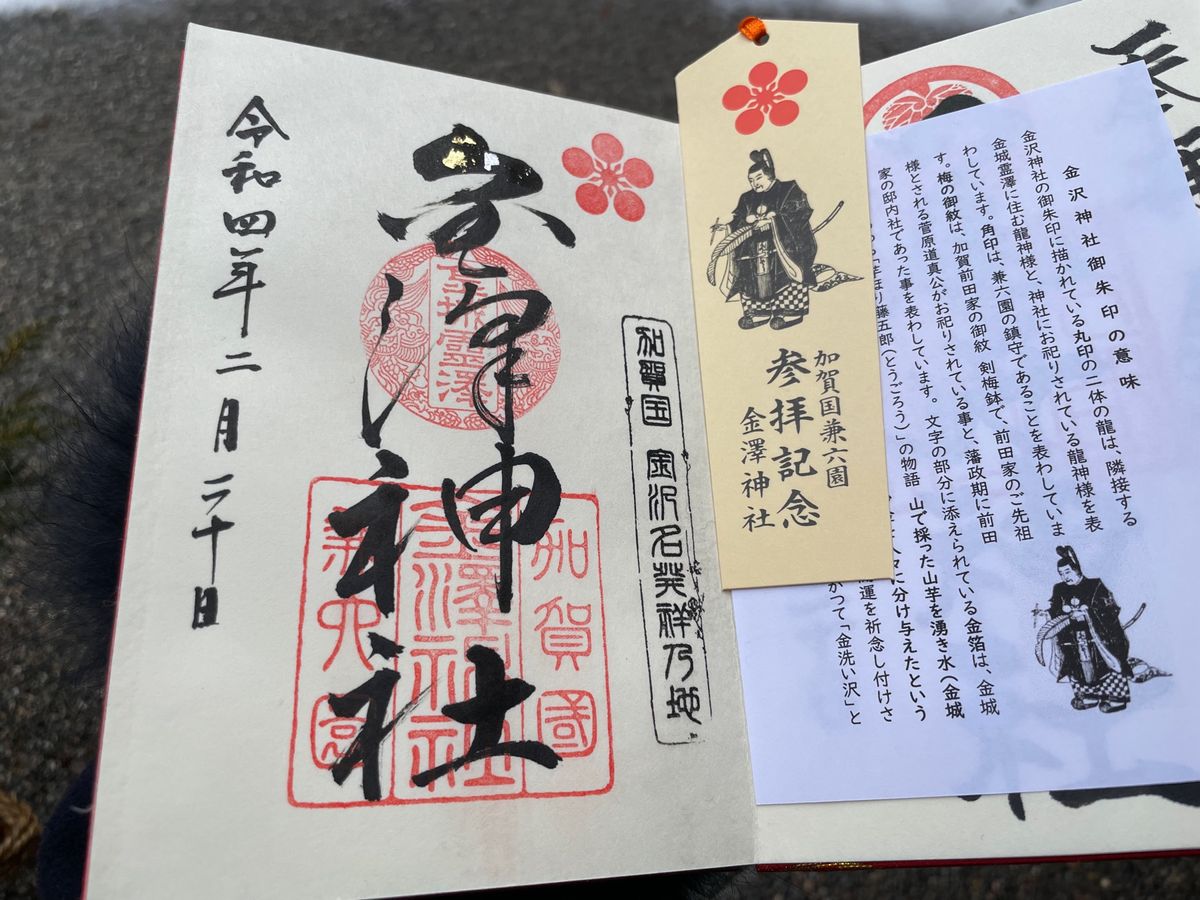 加賀国 金沢名発祥乃地
金澤神社
金城霊澤
加賀國
金澤神社
兼六園
令和四年二月二十日
加賀国兼六園
参拝記念
金澤神社
金沢神社御朱印の意味
金沢神社の御朱印に描かれている丸印の二体の龍は、隣接する
金城霊澤に住む龍神様と、神社にお祀りされている龍神様を表
わしています。角印は、兼六園の鎮守であることを表わしていま
す。梅の御紋は、加賀前田家の御紋 剣梅鉢で、前田家のご先祖
様とされる菅原道真公がお祀りされている事と、藩政期に前田
家の邸内社であった事を表わしています。 文字の部分に添えられている金箔は、金城
芋ほり藤五郎(とうごろう)」の物語 山で採った山芋を湧き水(金城
に分け与えたという
運を祈念し付けさ
かつて「金洗い沢」と